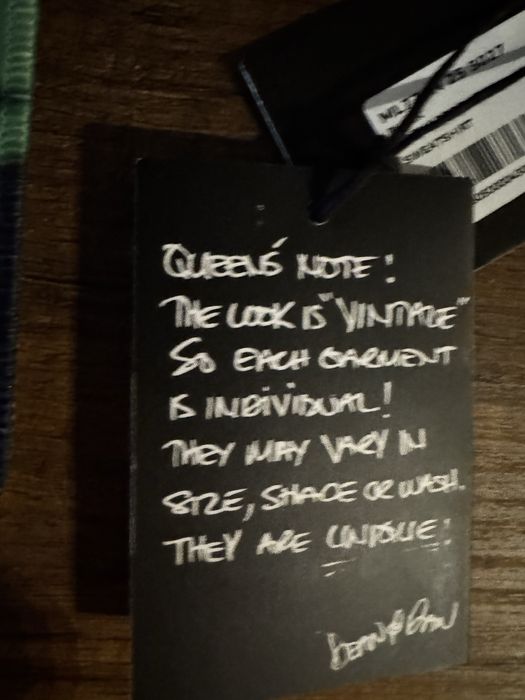 SWEATSHIRT
QUEENS' NOTE:
THE LOOK IS "VINTAGE"
SO EACH GARMENT
IS INDIVIDUAL!
THEY MAY VARY IN
SIZE, SHADE OR WASH.
THEY ARE UNIQUE!
DEAN & DAN